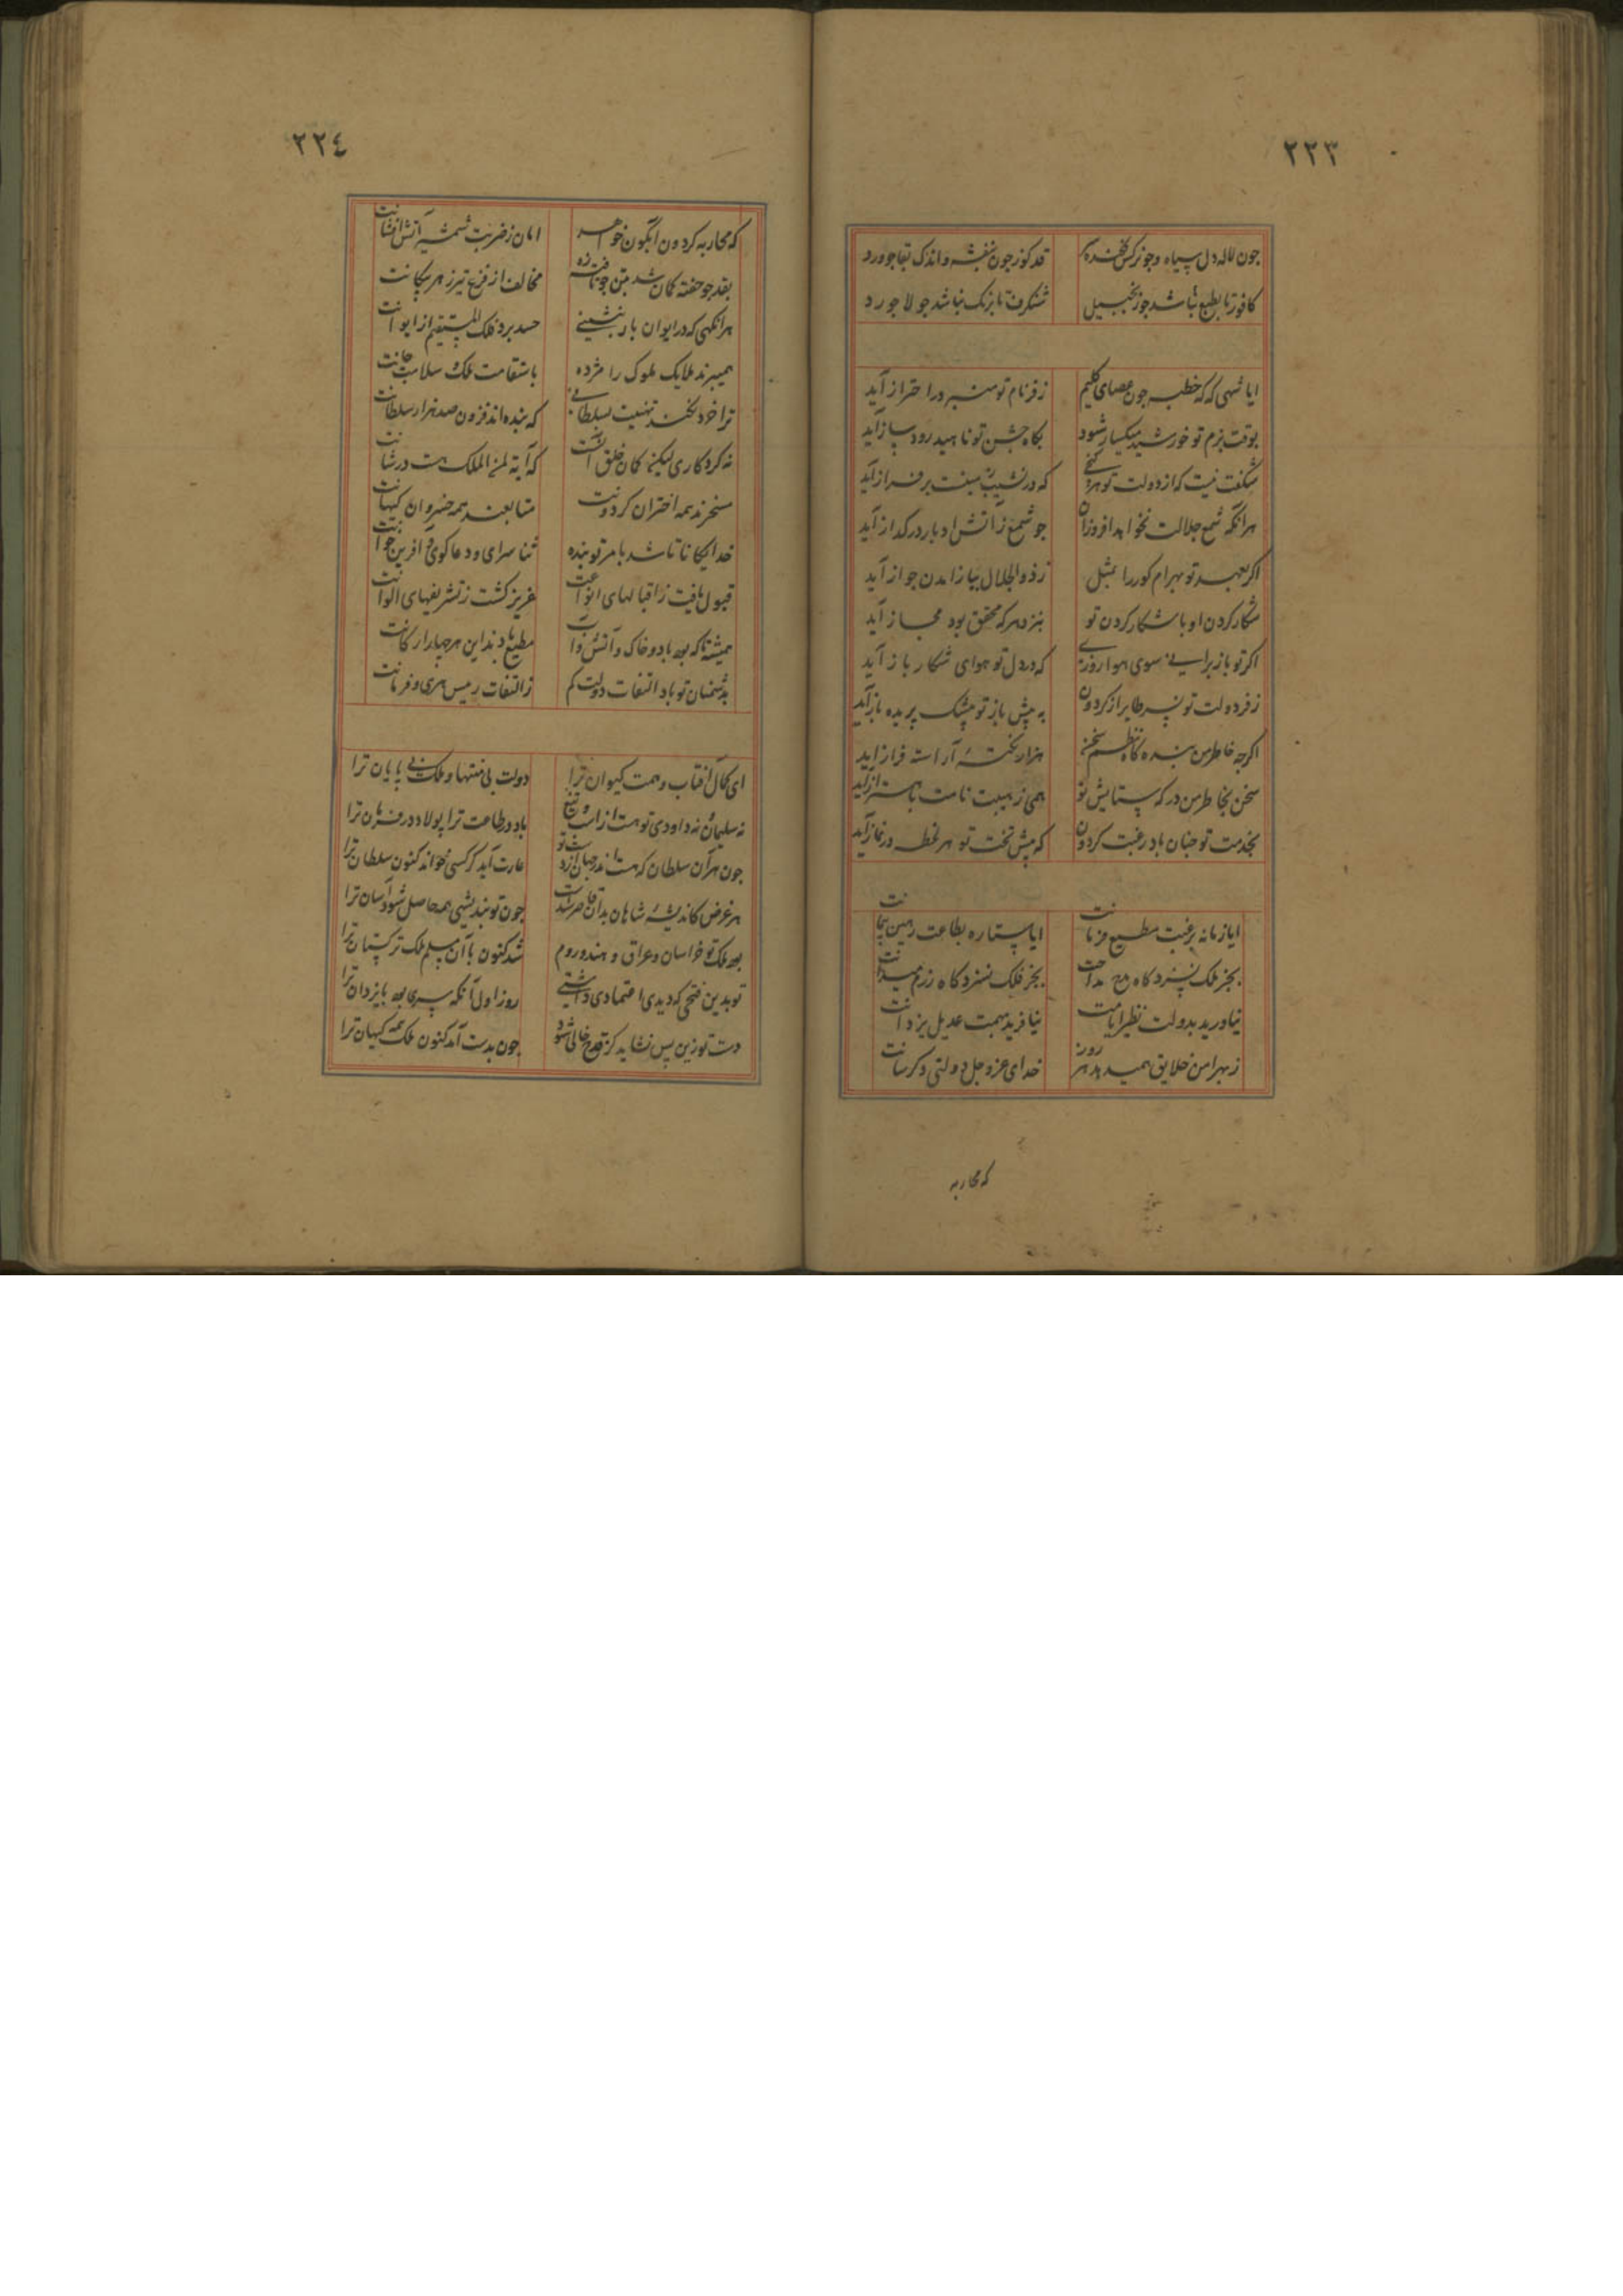 ٢٢٣
جون لاله دل سیاه وجو نرکس فکنده سر قد کوژ جون بنفشه واندک بقا جو ورد
کافور تا بطبع نباشد جو زنجبیل شنکرف تا برنک نباشد جو لاجورد
ایا شهی که که خطبه جون عصای کلیم ز فر نام تو منبر در احتراز آید
بوقت بزم تو خورشید میکسار شود بکاه جشن تو ناهید رود ساز آید
شکفت نیست که از دولت تو هر کنجی که در نشیب زمینست بر فراز آید
هر آنکه شمع جلالت نخواهد افروزان جو شمع ز آتش ادبار در کداز آید
اکر بعهد تو بهرام کور را بمثل ز ذوالجلال بباز آمدن جواز آید
شکار کردن او با شکار کردن تو بنزد هر که محقق بود مجاز آید
اکر تو باز برانی سوی هوا روزی که در دل تو هوای شکار باز آید
ز فر دولت تو نسر طایر از کردون به پیش باز تو بیشک پریده باز آید
اکرجه خاطر من بنده کاه نظم سخن هزار نکتهٔ آراسته فراز آید
سخن بخاطر من در که ستایش تو همی ز هیبت نامت باهتزاز آید
بخدمت تو جنان باد رغبت کردون که پیش تخت تو هر لحظه در نماز آید
ایا زمانه برغبت مطیع فرمانت ایا ستاره بطاعت رهین پیمانت
بجز ملک نسزد کاه مدح مداحت بجز فلک نسزد کاه رزم میدانت
نیاورید بدولت نظیر ایامت نیافرید بهمت عدیل یزدانت
ز بهر امن خلایق همیدهد هر روز خدای عزوجل دولتی دکرسانت
که محاربه
٢٢٤
که محاربه کردون آبکون خواهد امان ز ضربت شمشیر آتش افشانت
بقد جو خفته کمان شد بتن جو تافته زه مخالف از فزع تیز زهر پیکانت
هر آنکهی که در ایوان بار بنشینی حسد برد فلک المستقیم از ایوانت
همیبرند ملایک ملوک را مژده باستقامت ملک و سلامت جانت
ترا خرد نکند تهنیت بسلطانی که بنده اند فزون صد هزار سلطانت
نه کردکاری لیکن کمان خلق آنست که آیة لمن الملک هست در شانت
مسخرند همه اختران کردونت متابعند همه خسروان کیهانت
خدایکانا تا شد بامر تو بنده ثنا سرای و دعا کوی و آفرین خوانت
قبول یافت ز اقبالهای انواعت عزیز کشت ز تشریفهای الوانت
همیشه تا که بود باد و خاک و آتش و آب مطیع باد بدین هر جهار ارکانت
بدشمنان تو باد التفات دولت کم ز التفات رییس هری و فرمانت
ای کمال آفتاب و همت کیوان ترا دولت بی منتها و ملک بی پایان ترا
نه سلیمان نه داودی تو هست از اسب و تیغ باد در طاعت ترا پولاد در فرمان ترا
جون هر آن سلطان که هست اندر جهان آزاد تست عارت آید کر کسی خواند کنون سلطان ترا
هر غرض کاندیشهٔ شاهان بدان قاصر شدست جون تو بندیشی همه حاصل شود آسان ترا
بود ملک تو خراسان و عراق و هند و روم شد کنون با آن مسلم ملک ترکستان ترا
تو بدین فتحی که دیدی اعتمادی داشتی روز اول آنکه سری بود با یزدان ترا
دست تو زین پس نشاید کز قدح خالی شود جون بدست آمد کنون ملک همه کیهان ترا